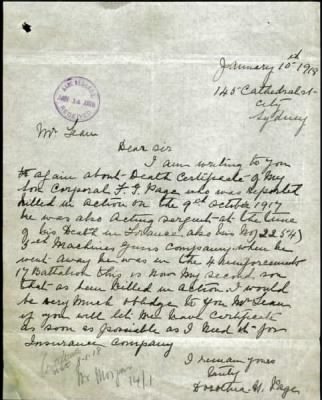 January 10th 1918
145 Cathedral st
City
Sydney
BASE RECORDS
JAN 14 1918
RECEIVED
Mr Lean
Dear sir
I am writing to you
again about Death Certificate of My
Son Corporal F. G. Page who was Reported
killed in Action on the 9th October 1917
he was also Acting sergent at the time
of his Death in France also his No 2254
Machine Guns Company when he
went Away he was in the 4 Reinforcement
17 Battalion this is Now My second son
that as been killed in Action I would
be very Much obledge to You Mr Lean
if you will let Me have Certificate
as soon as possiable as I Need it for
Insurance Company
I remain yours
Dorothia H. Page
Mr Morgan
14/1